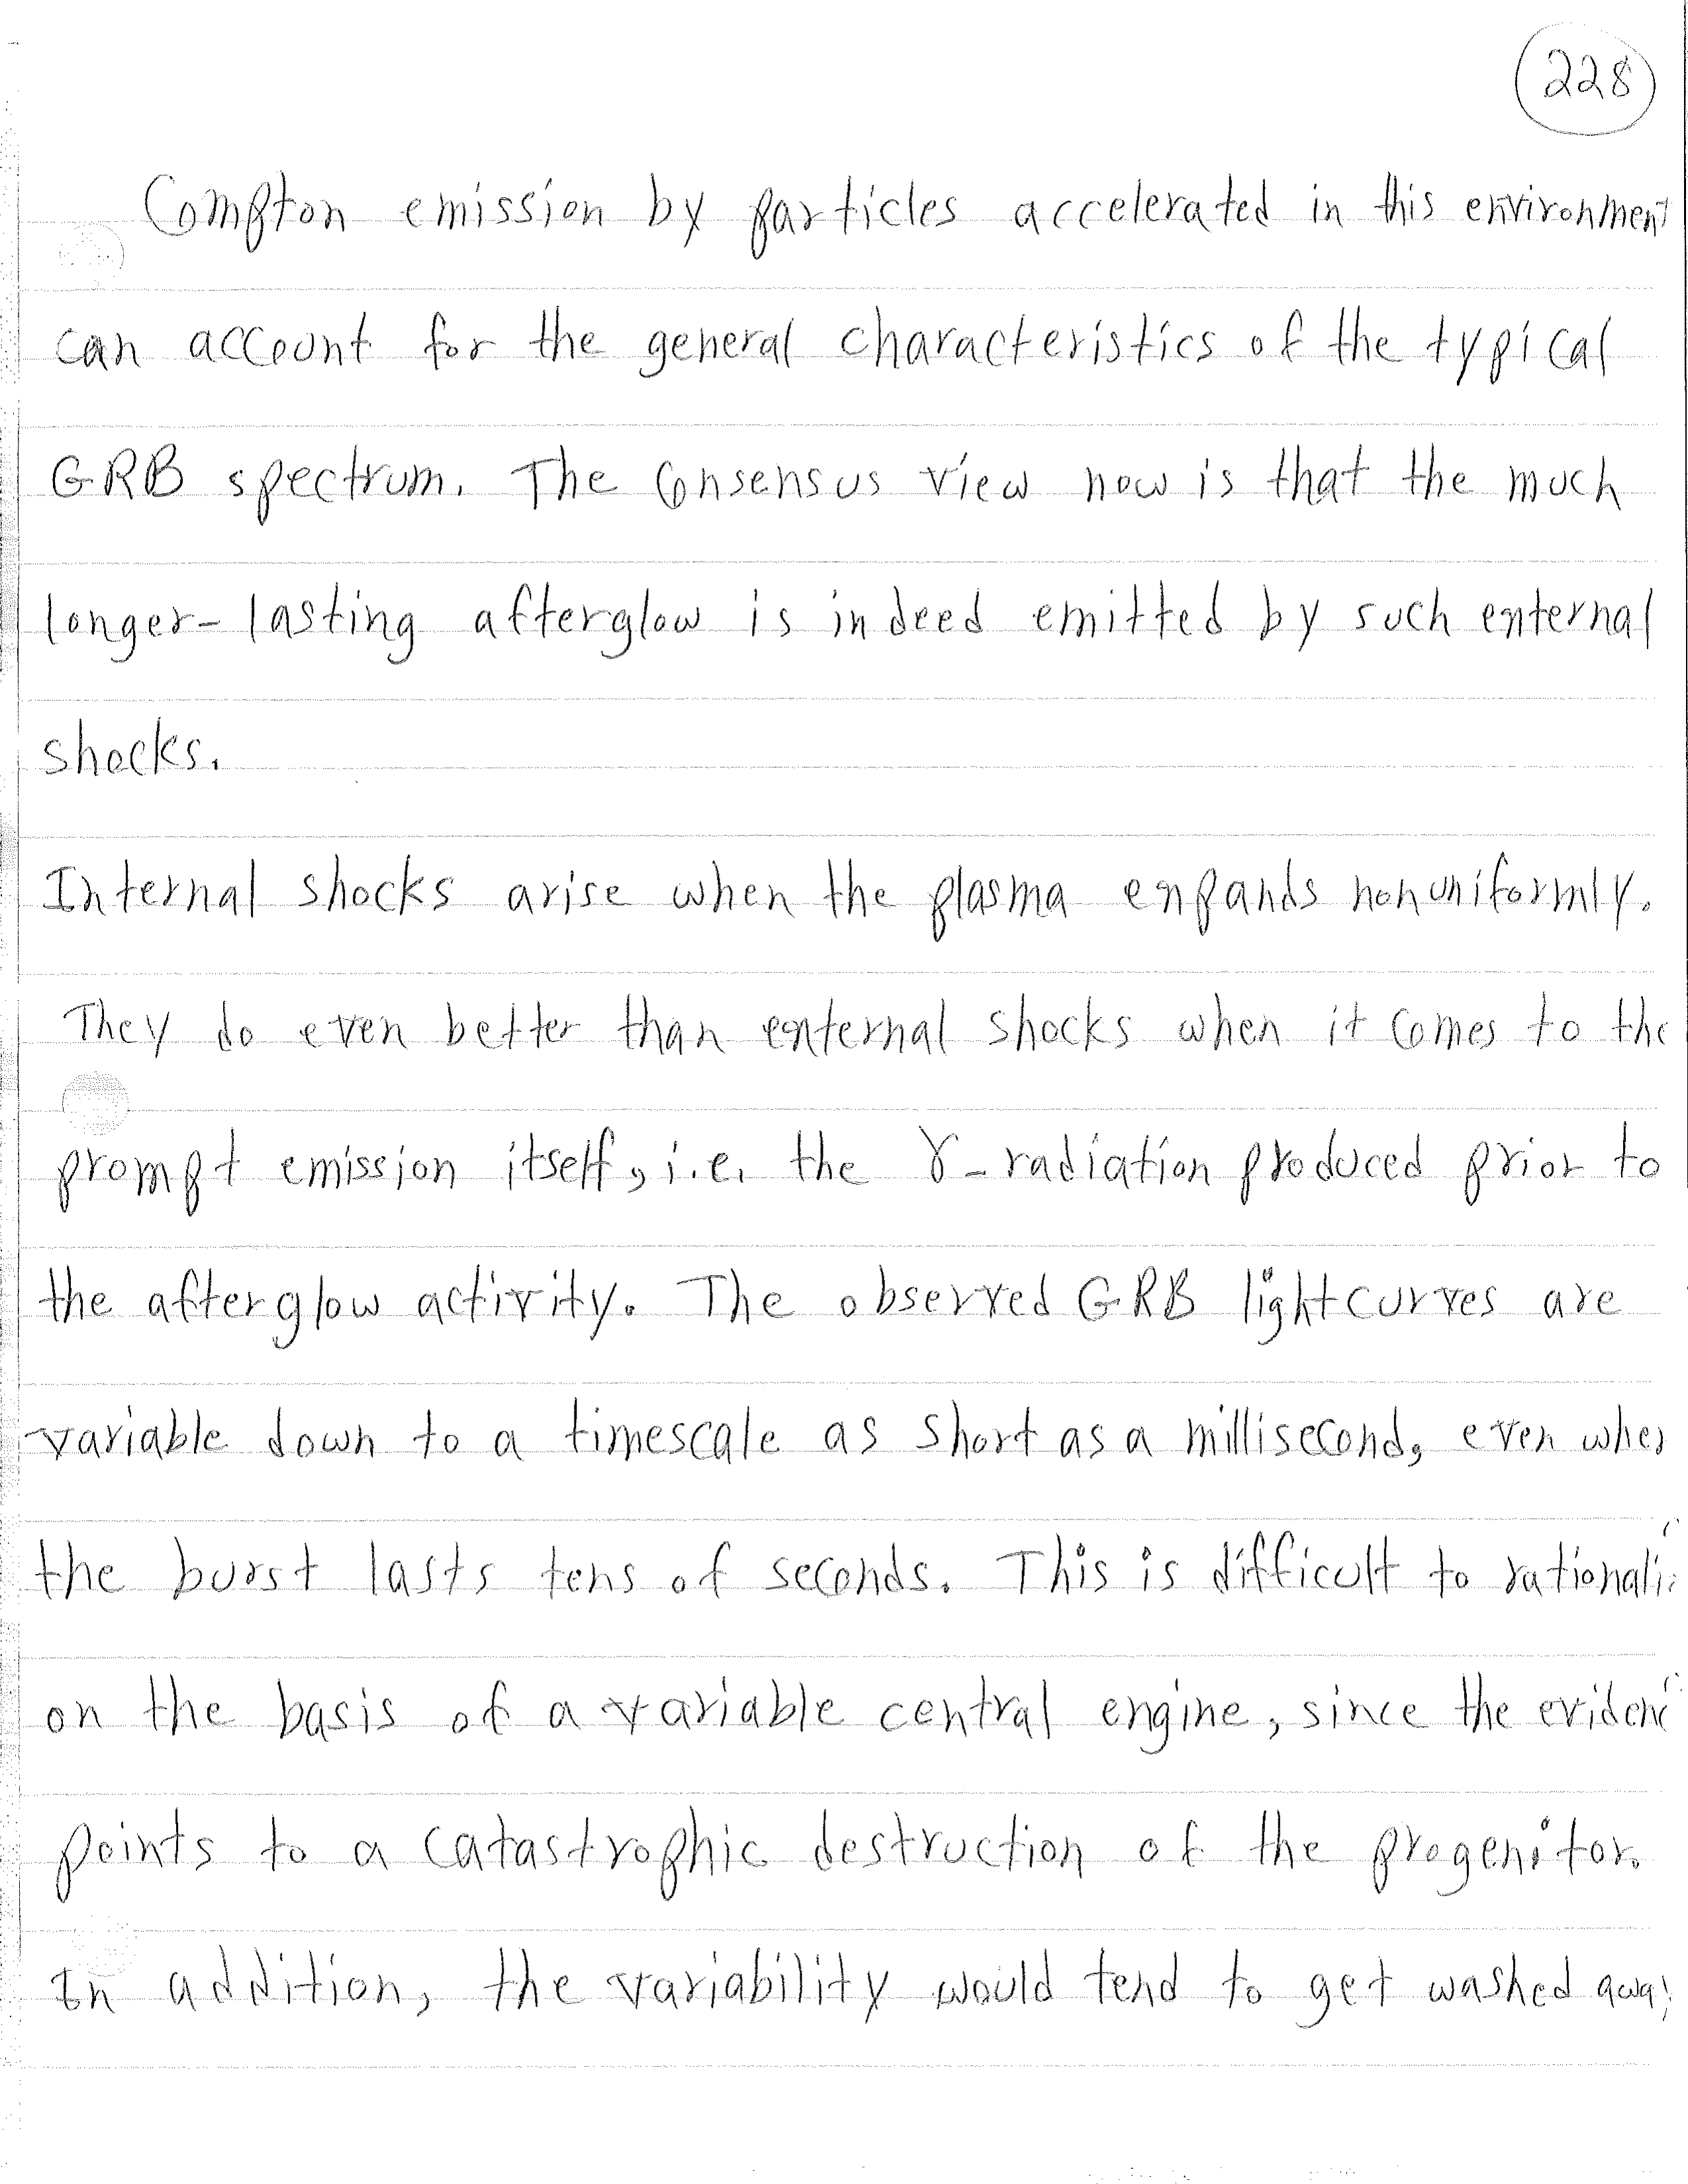 228
Compton emission by particles accelerated in this environment
can account for the general characteristics of the typical
GRB spectrum. The consensus view now is that the much
longer-lasting afterglow is indeed emitted by such external
shocks.
Internal shocks arise when the plasma expands nonuniformly.
They do even better than external shocks when it comes to the
prompt emission itself, i.e. the γ-radiation produced prior to
the afterglow activity. The observed GRB lightcurves are
variable down to a timescale as short as a millisecond, even when
the burst lasts tens of seconds. This is difficult to rationali
on the basis of a variable central engine, since the evidenc
points to a catastrophic destruction of the progenitor.
In addition, the variability would tend to get washed away